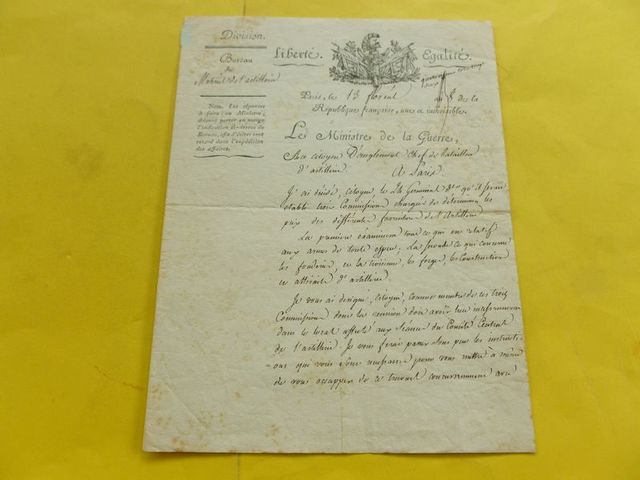 Division.
Bureau
du
Matériel de l'artillerie
Liberté. Egalité.
Nota. Les réponses
à faire au Ministre,
doivent porter en marge
l'indication ci-dessus du
Bureau, afin d'éviter tout
retard dans l'expédition
des affaires.
Paris, le 13 floréal an 8 de la
République française, une et indivisible.
Le Ministre de la Guerre,
Au citoyen Danglemont Chef de bataillon
d'artillerie. A Paris
J'ai décidé, citoyen, le 24 Germinal dr. qu'il serait
établi trois Commissions chargées de déterminer les
prix des différentes fournitures de l'artillerie
La première examinera tout ce qui est relatif
aux armes de toute espèce; La seconde ce qui concerne
les fonderies, et la troisième, les forges, les constructions
et attirails d'artillerie
Je vous ai désigné, citoyen, comme membre de ces trois
Commissions dont la réunion doit avoir lieu
dans le local affecté aux séances du Comité Central
de l'artillerie. Je vous ferai passer sous peu les instructi-
ons qui vous sont nécessaires pour vous mettre à même
de vous occuper de ce travail concurremment avec